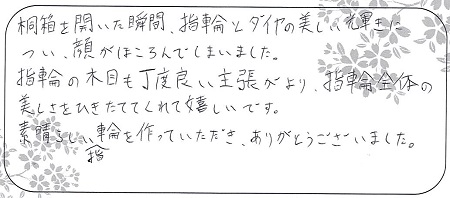 桐箱を開いた瞬間、指輪とダイヤの美しい光輝きに
つい、顔がほころんでしまいました。
指輪の木目も丁度良い主張がより、指輪全体の
美しさをひきたててくれて嬉しいです。
素晴らしい指輪を作っていただき、ありがとうございました。